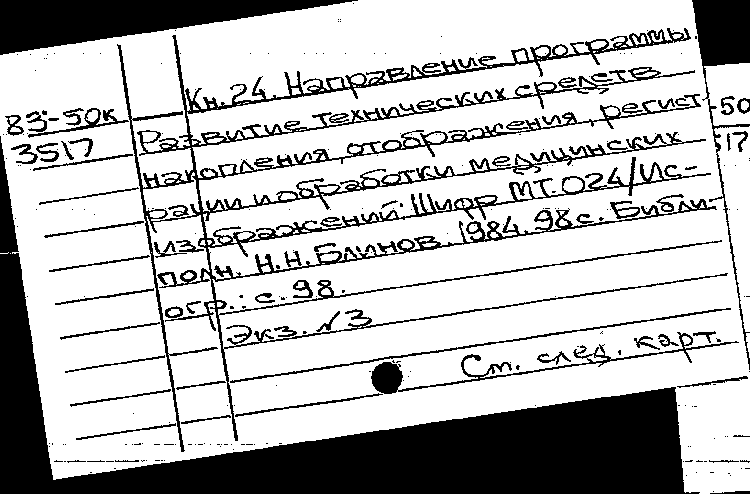 Кн. 24. Направление программы
83-50к
3517
Развитие технических средств
накопления, отображения, регист-
рации и обработки медицинских
изображений: Шифр МТ.024/Ис-
полн. Н.Н. Блинов. 1984. 98с. Библи-
огр.: с. 98.
Экз. №3
См. след. карт.
-50
517